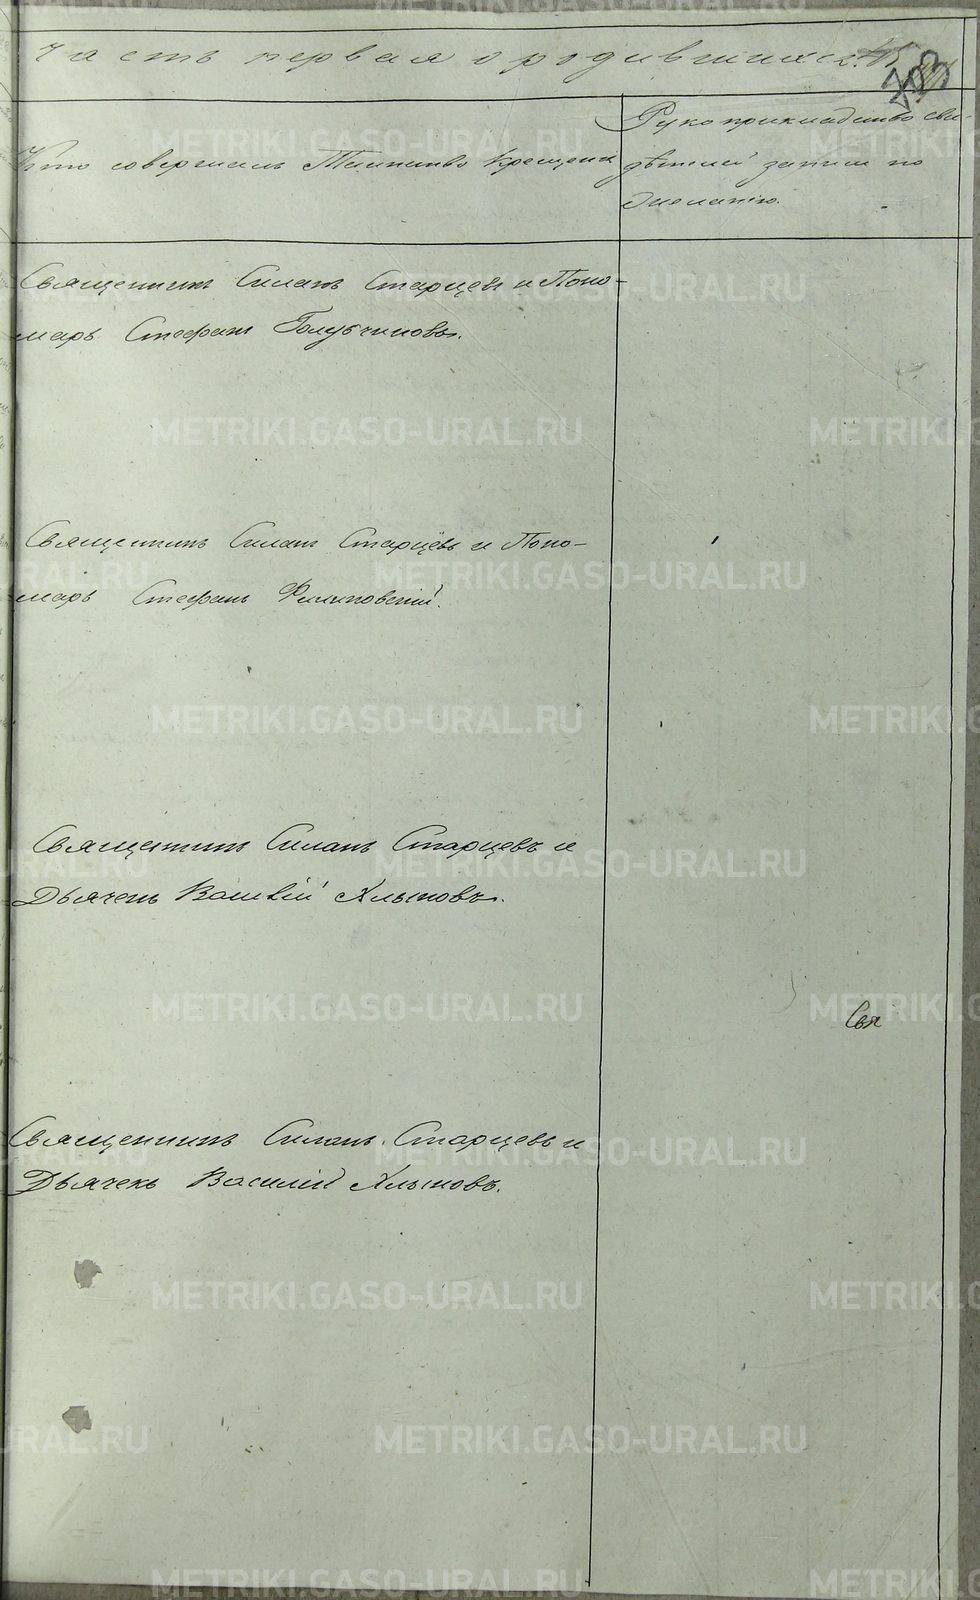 Часть первая о родившихся.
Кто совершалъ Таинство Крещенія
Рукоприкладство сви-
дѣтелей записи по
желанію.
Священникъ Силанъ Старцевъ и Поно-
марь Стефанъ Голубчиковъ.
Священникъ Силанъ Старцевъ и Поно-
марь Стефанъ Филиповскій.
Священникъ Силанъ Старцевъ и
Дьячекъ Василій Хлыновъ.
Свя
Священникъ Силанъ Старцевъ и
Дьячекъ Василій Хлыновъ.
METRIKI.GASO-URAL.RU